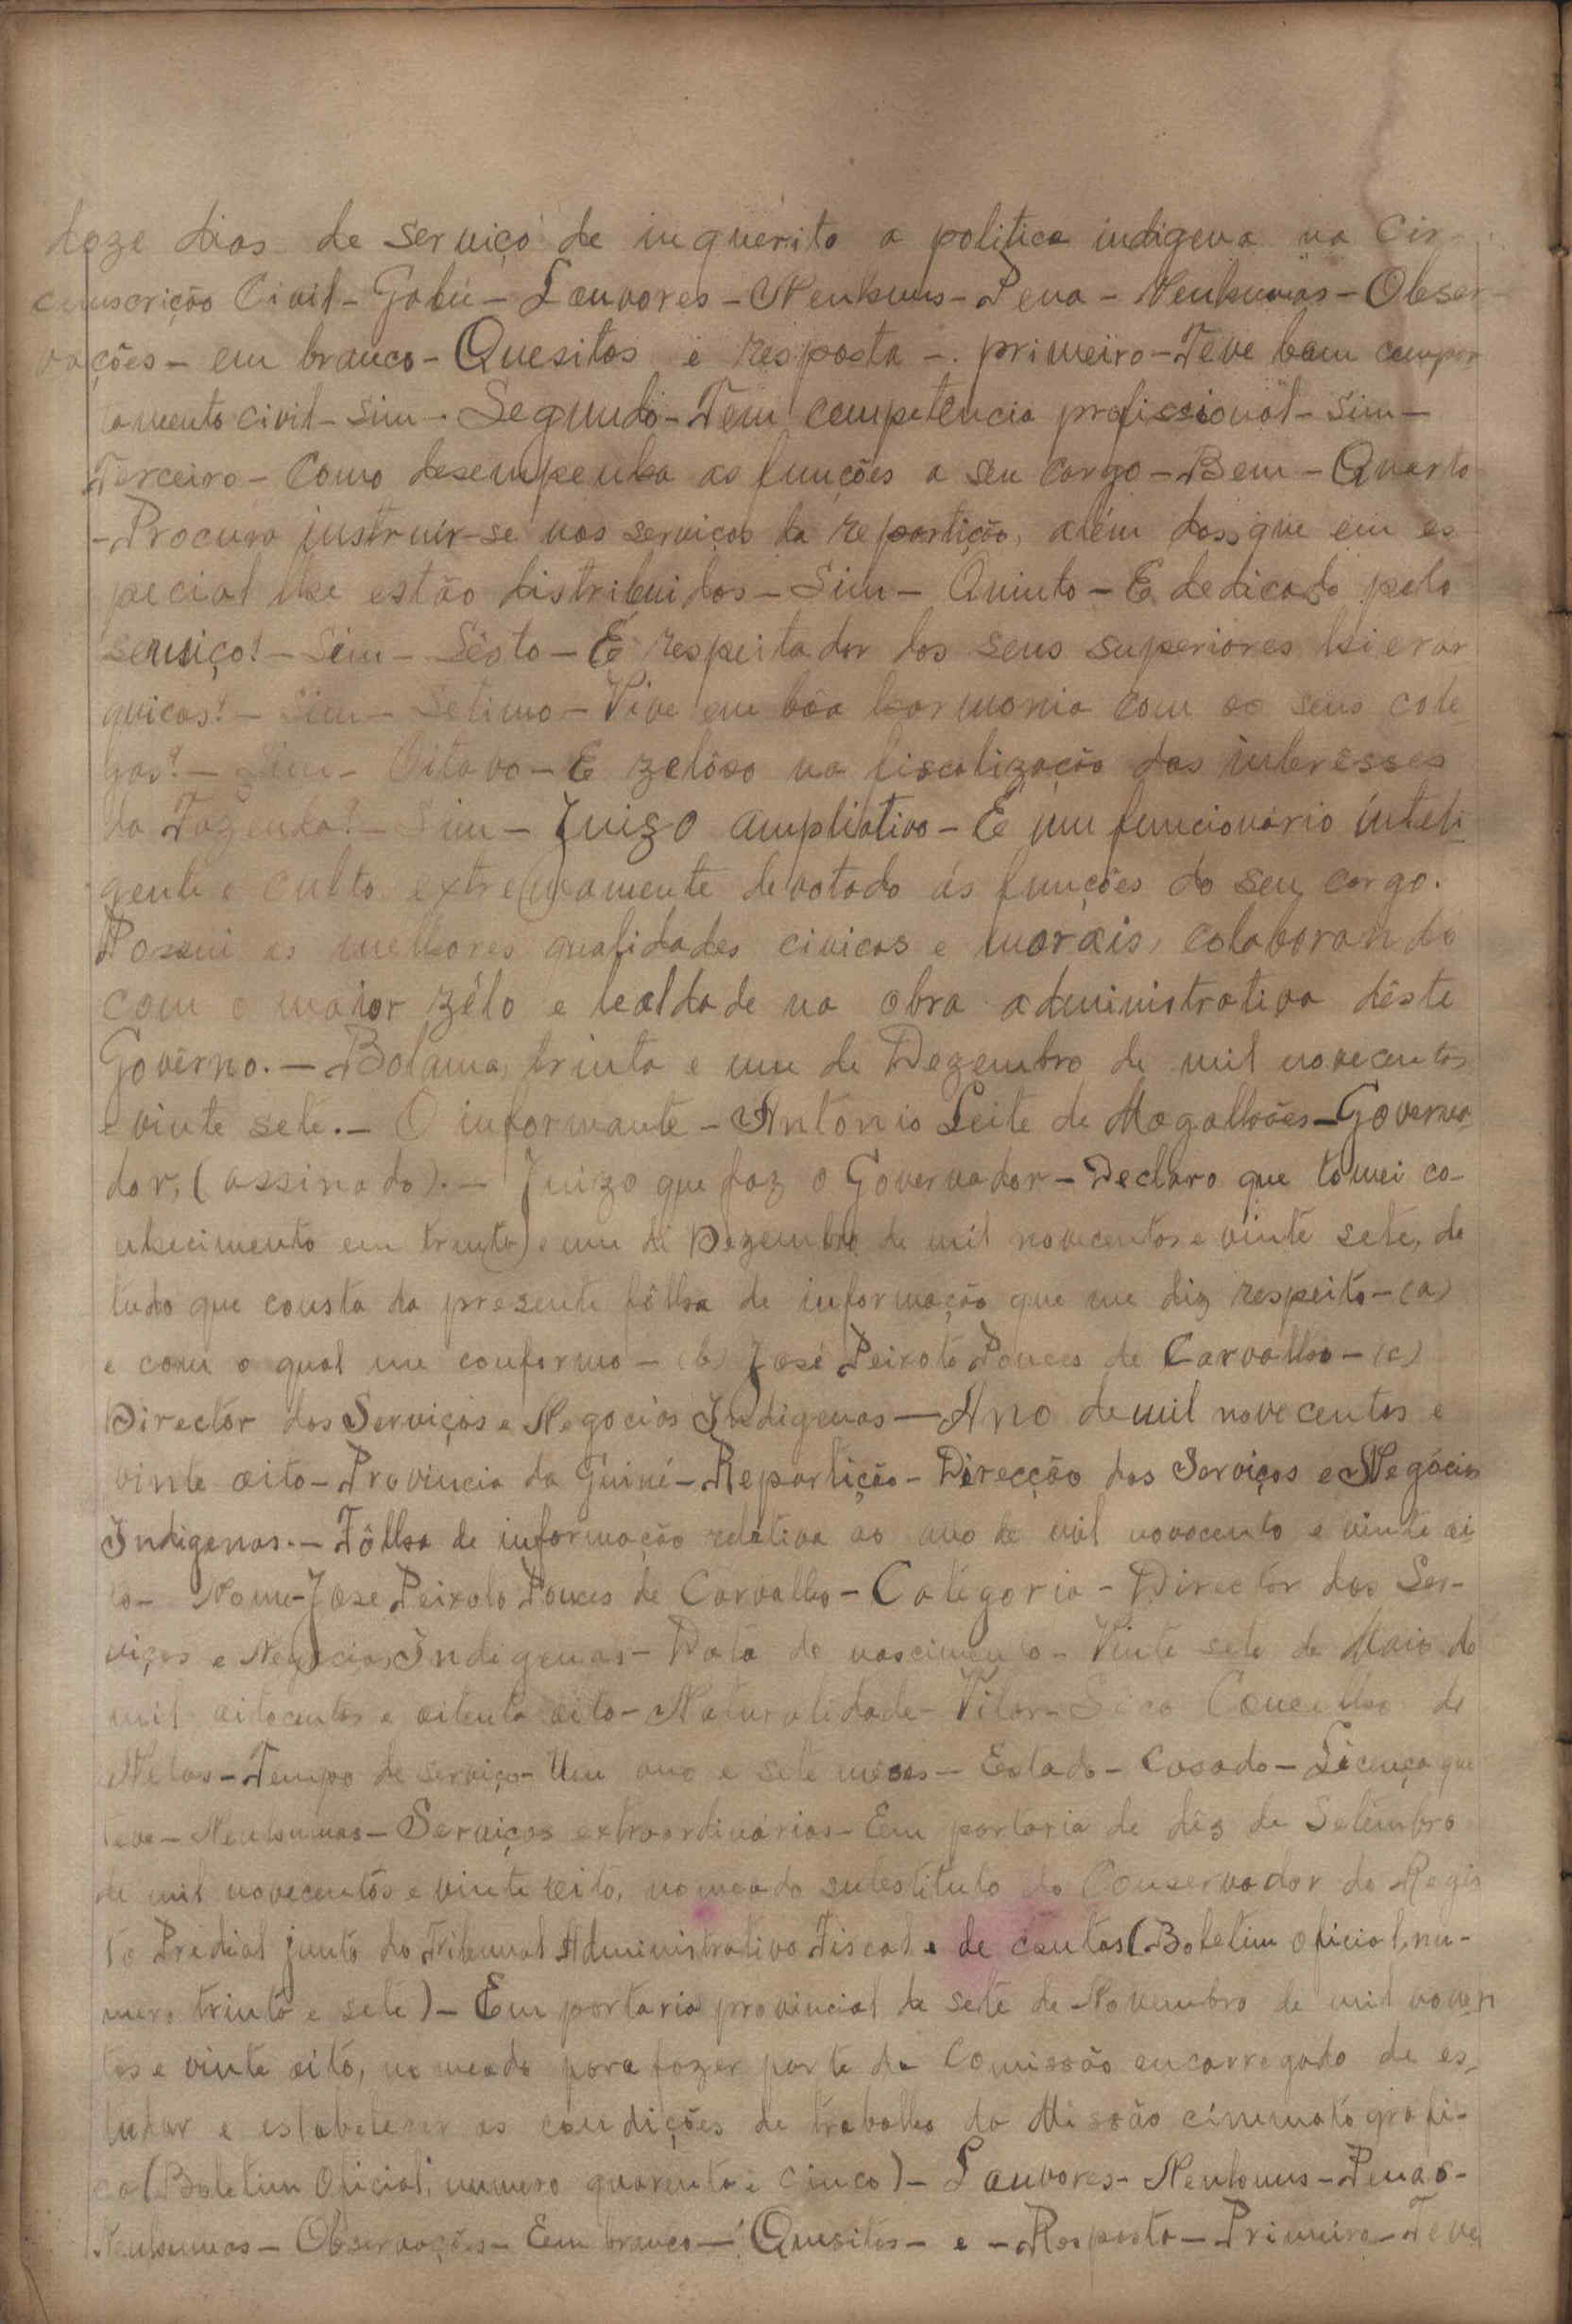 doze dias de serviço de inquérito a politica indigena na Cir-
cunscrição Civil - Gabú - Louvores - Nenhuns - Pena - Nenhumas - Obser-
vações - em branco - Quesitos e resposta - . primeiro - Teve bom compor
tamento civil - sim - Segundo - Tem competência profissional - Sim -
Terceiro - Como desempenha as funções a seu cargo - Bem - Quarto
- Procura instruir-se nos serviços da repartição, além dos que em es
pecial lhe estão distribuidos - Sim - Quinto - É dedicado pelo
serviço? - Sim - Sêsto - É respeitador dos seus superiores hierar
quicos? - Sim - Setimo - Vive em bôa harmonia com os seus cole
gas? - Sim - Oitavo - É zelôso na fiscalização dos interêsses
da Fazenda? - Sim - Juizo ampliativo - É um funcionário inteli
gente e culto extremamente devotado ás funções do seu cargo.
Possui as melhores qualidades civicas e morais, colaborando
com o maior zêlo e lealdade na obra administrativa dêste
Govêrno. - Bolama, trinta e um de Dezembro de mil novecentos
e vinte sete. - O informante - António Leite de Magalhães - Governa
dor, (assinado). - Juizo que faz o Governador - Declaro que tomei co-
nhecimento em trinta e um de Dezembro de mil novecentos e vinte sete, de
tudo que consta da presente fôlha de informação que me diz respeito - (a)
e com o qual me conformo - (b) José Peixoto Ponces de Carvalho - (c)
Director dos Serviços e Negocios Indigenas - Ano de mil novecentos e
vinte oito - Provincia da Guiné - Repartição - Direcção dos Serviços e Negócios
Indigenas. - Fôlha de informação relativa ao ano de mil novecento e vinte oi
to - Nome - José Peixoto Ponces de Carvalho - Categoria - Director dos Ser-
viços e Negocios Indigenas - Data de nascimento - Vinte sete de Maio de
mil oitocentos e oitenta oito - Naturalidade - Vilar-Sêco Concelho de
Nelas - Tempo de serviço - Um ano e sete meses - Estado - Casado - Licença que
teve - Nenhumas - Serviços extraordinários - Em portaria de dês de Setembro
de mil novecentos e vinte oito, nomeado substituto do Conservador do Regis
to Predial junto do Tribunal Administrativo Fiscal e de contas (Boletim oficial, nu-
mero trinta e sete) - Em portaria provincial de sete de Novembro de mil noven
tos e vinte oito, nomeado para fazer parte da Comissão encarregado de es-
tudar e estabelecer as condições de trabalho da Missão cinematógrafi-
ca (Boletim Oficial, numero quarenta e cinco) - Louvores - Nenhuns - Penas -
Nenhumas - Observações - Em branco - Quesitos - e - Resposta - Primeiro - Teve